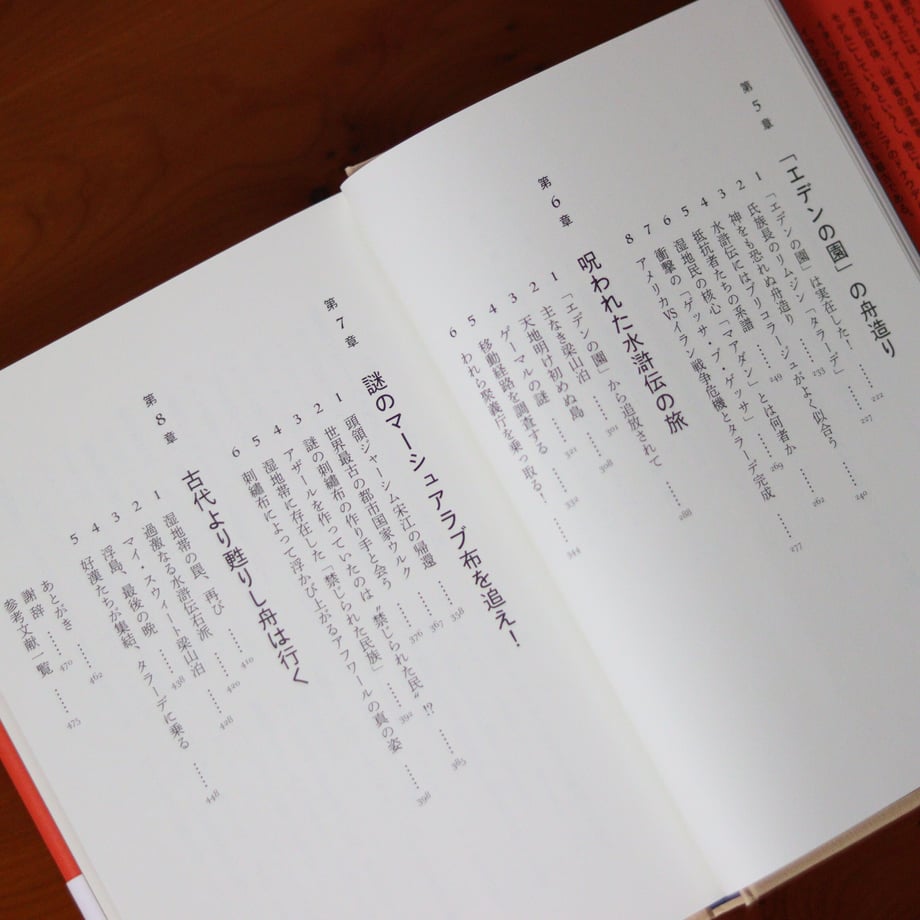 第5章
「エデンの園」の舟造り
1 「エデンの園」は実在した! …… 222
2 氏族長のリムジン「タラーデ」 …… 227
3 神をも恐れぬ舟造り …… 233
4 水滸伝にはブリコラージュがよく似合う …… 240
5 抵抗者たちの系譜 …… 249
6 湿地民の核心「マアダン」とは何者か …… 262
7 衝撃の「ゲッサ・ブ・ゲッサ」 …… 269
8 アメリカVSイラン戦争危機とタラーデ完成 …… 277
第6章
呪われた水滸伝の旅
1 「エデンの園」から追放されて …… 288
2 主なき梁山泊 …… 301
3 天地明け初めぬ島 …… 308
4 ゲーマルの謎 …… 321
5 移動経路を調査する …… 332
6 われら聚義庁を乗っ取る! …… 344
第7章
謎のマーシュアラブ布を追え!
1 頭領ジャーシム宋江の帰還 …… 358
2 世界最古の都市国家ウルク …… 367
3 謎の刺繡布の作り手と会う …… 376
4 アザールを作っていたのは〝禁じられた民〟!? …… 385
5 湿地帯に存在した「禁じられた民族」 …… 392
6 刺繡布によって浮かび上がるアフワールの真の姿 …… 398
第8章
古代より甦りし舟は行く
1 湿地帯の罠、再び …… 410
2 過激なる水滸伝右派 …… 420
3 マイ・スウィート梁山泊 …… 428
4 浮島、最後の晩 …… 438
5 好漢たちが集結、タラーデに乗る …… 448
あとがき …… 462
謝辞 …… 470
参考文献一覧 …… 475